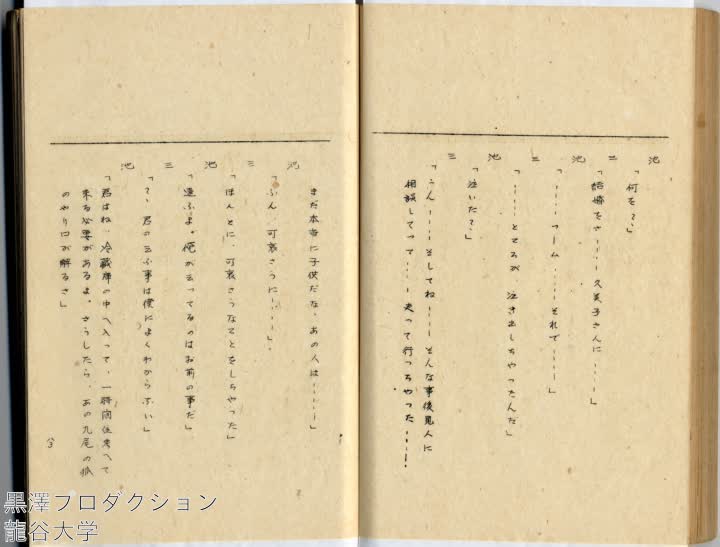 池
「何を？」
三
「結婚をさ……久美子さんに……」
池
「……フーム……それで……」
三
「……ところが 泣き出しちやつたんだ」
池
「泣いた？」
三
「うん……そしてね……そんな事後見人に
相談してつて……走つて行つちやつた……
まだ本当に子供だな、あの人は……」
池
「ふん、可哀さうに……」
三
「ほんとに、可哀さうなことをしちやつた」
池
「違ふよ。俺が云つてるのはお前の事だ」
三
「？、君の云ふ事は僕によくわからない」
池
「君はね、冷蔵庫の中へ入つて、一時間位考へて
来る必要があるよ。さうしたら、あの九尾の狐
のやり口が解るさ」
黒澤プロダクション
龍谷大学